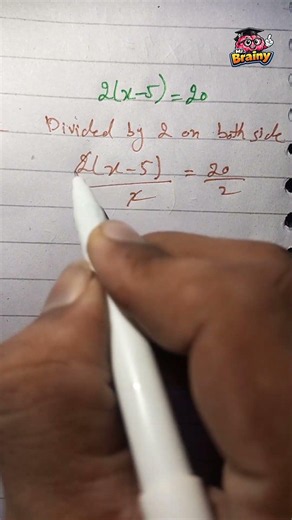 Mr
Brainy
2(x-5)=20
Divided by 2 on both side
2(x-5)/2 = 20/2